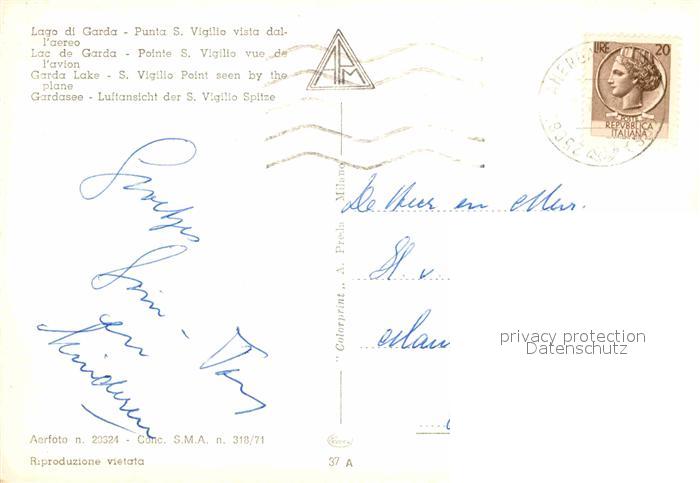 Lago di Garda - Punta S. Vigilio vista dal-
l'aereo
Lac de Garda - Pointe S. Vigilio vue de
l'avion
Garda Lake - S. Vigilio Point seen by the
plane
Gardasee - Luftansicht der S. Vigilio Spitze
APM
LIRE 20
POSTE
REPVBBLICA
ITALIANA
"Colorprint" A. Preda Milano
De Heer en Mevr.
H. v.
Groetjes
en
Kinderen
privacy protection
Datenschutz
Aerfoto n. 20324 - Conc. S.M.A. n. 318/71
Riproduzione vietata
37 A